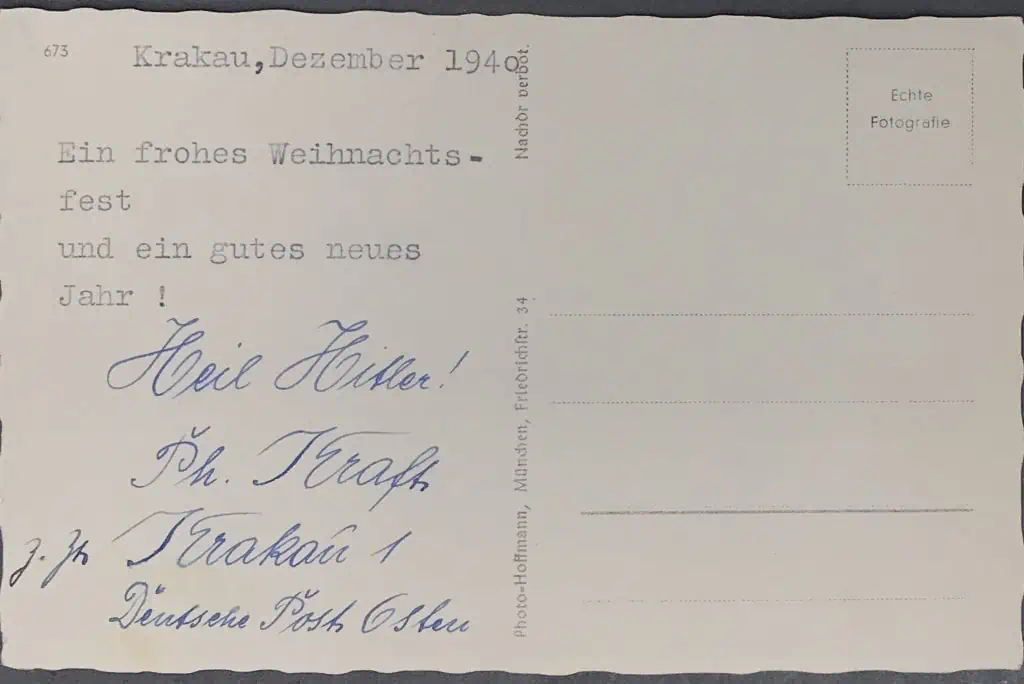 673
Krakau,Dezember 1940
Ein frohes Weihnachts-
fest
und ein gutes neues
Jahr !
Heil Hitler!
Ph. Kraft
z. Zt. Krakau 1
Deutsche Post Osten
Photo-Hoffmann, München, Friedrichstr. 34
Nachdr verbot.
Echte
Fotografie